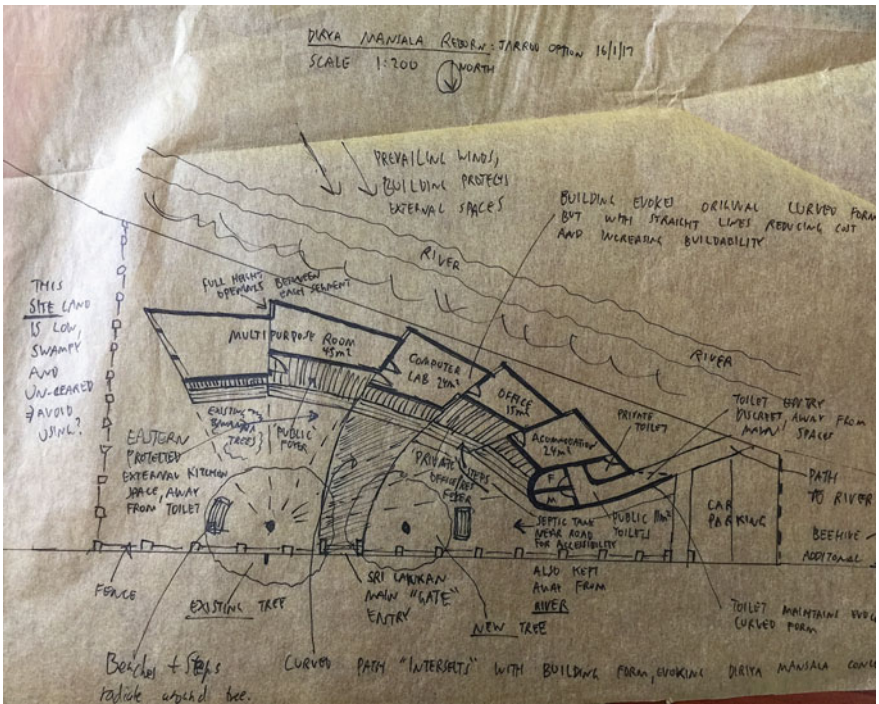 DIRIYA MANSALA REBORN: JARROD OPTION 16/1/17
SCALE 1:200
NORTH
PREVAILING WINDS,
BUILDING PROTECTS
EXTERNAL SPACES
BUILDING EVOKES ORIGINAL CURVED FORM
BUT WITH STRAIGHT LINES REDUCING COST
AND INCREASING BUILDABILITY
RIVER
RIVER
THIS
SITE LAND
IS LOW,
SWAMPY
AND
UN-CLEARED
AVOID
USING?
FULL HEIGHT
OPENINGS BETWEEN
EACH SEGMENT
MULTIPURPOSE ROOM
45m²
COMPUTER
LAB 24m²
OFFICE
15m²
ACCOMODATION
24m²
PRIVATE
TOILET
TOILET ENTRY
DISCREET, AWAY FROM
MAIN SPACES
EXISTING
BANANA
TREES
"PUBLIC"
FOYER
EASTERN
PROTECTED
EXTERNAL KITCHEN
SPACE, AWAY
FROM TOILET
PRIVATE STEPS
OFFICE/RES
FOYER
F
M
PUBLIC 11m²
TOILETS
SEPTIC TANK
NEAR ROAD
FOR ACCESSIBILITY
ALSO KEPT
AWAY FROM
RIVER
CAR
PARKING
PATH
TO RIVER
BEEHIVE
ADDITIONAL
FENCE
EXISTING TREE
SRI LANKAN
MAIN "GATE"
ENTRY
NEW TREE
TOILET MAINTAINS
CURVED FORM
Benches + Steps
radiate around tree.
CURVED PATH "INTERSECTS" WITH BUILDING FORM, EVOKING DIRIYA MANSALA